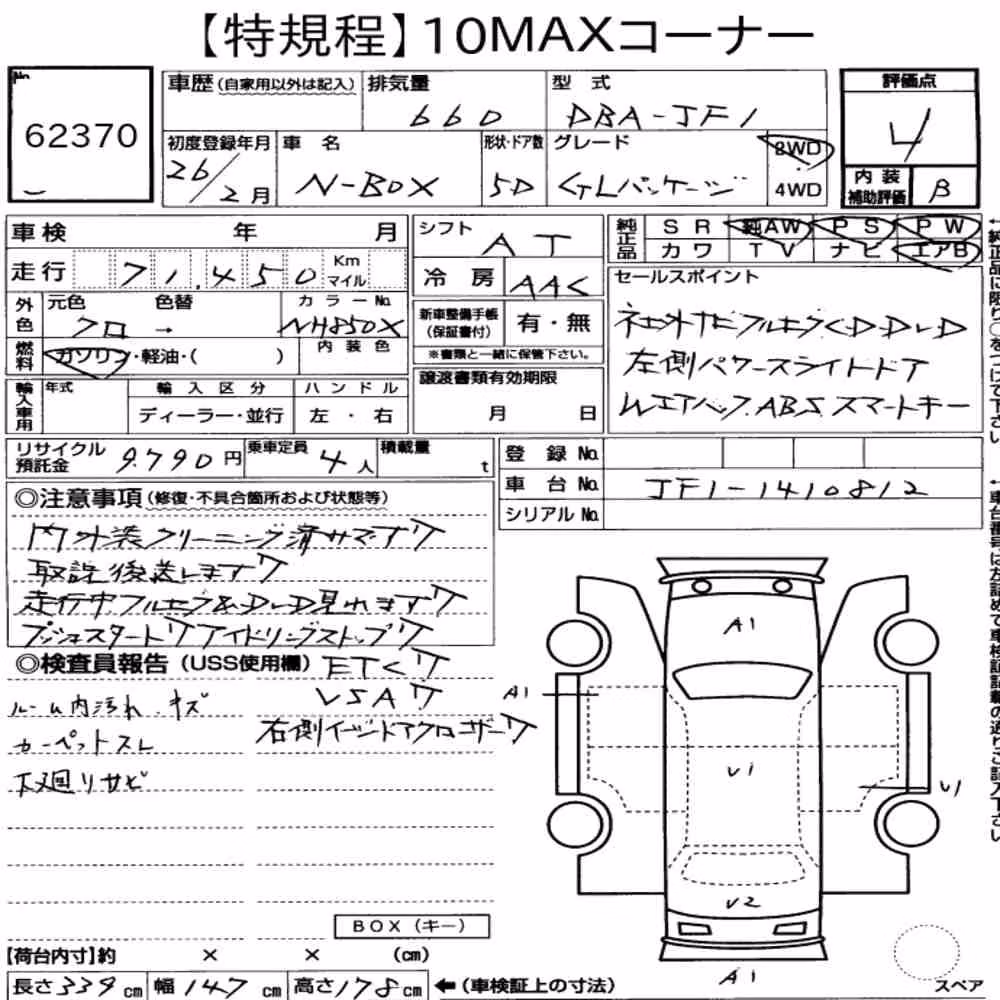 【特規程】10MAXコーナー
No.
62370
車歴 (自家用以外は記入) 排気量 型式
660 DBA-JF1
初度登録年月 車名 形状・ドア数 グレード 2WD
26/2月 N-BOX 5D GLパッケージ 4WD
評価点
4
内装補助評価 B
車検 年 月
走行 71,450 Km マイル
外色 元色 色替 カラーNo.
クロ → NH850X
燃料 ガソリン・軽油・( ) 内装色
輸入車用 年式 輸入区分 ハンドル
ディーラー・並行 左・右
シフト AT
冷房 AAC
新車整備手帳 (保証書付) 有・無
※書類と一緒に保管下さい。
譲渡書類有効期限
月 日
純正品 SR 純AW PS PW
カワ TV ナビ エアB
セールスポイント
社外ナビフルセグCDDVD
左側パワースライドドア
WエアバックABSスマートキー
←純正品に限り○をつけて下さい
リサイクル預託金 9.790円 乗車定員 4人 積載量 t
登録No.
車台No. JF1-1410812
シリアルNo.
←車台番号は左詰めで車検証記載の通りご記入下さい
◎注意事項 (修復・不具合箇所および状態等)
内外装クリーニング済みです♡
取説後送します
走行中フルセグ&DVD見れます
プッシュスタート アイドリングストップ
◎検査員報告 (USS使用欄) ETC
VSA
右側イージードアクローザー
ルーム内汚れ.キズ
カーペットスレ
下廻りサビ
A1
A1
U1
U1
U2
A1
BOX (キー)
【荷台内寸】約 × × (cm)
長さ339cm 幅147cm 高さ178cm ←(車検証上の寸法)
スペア